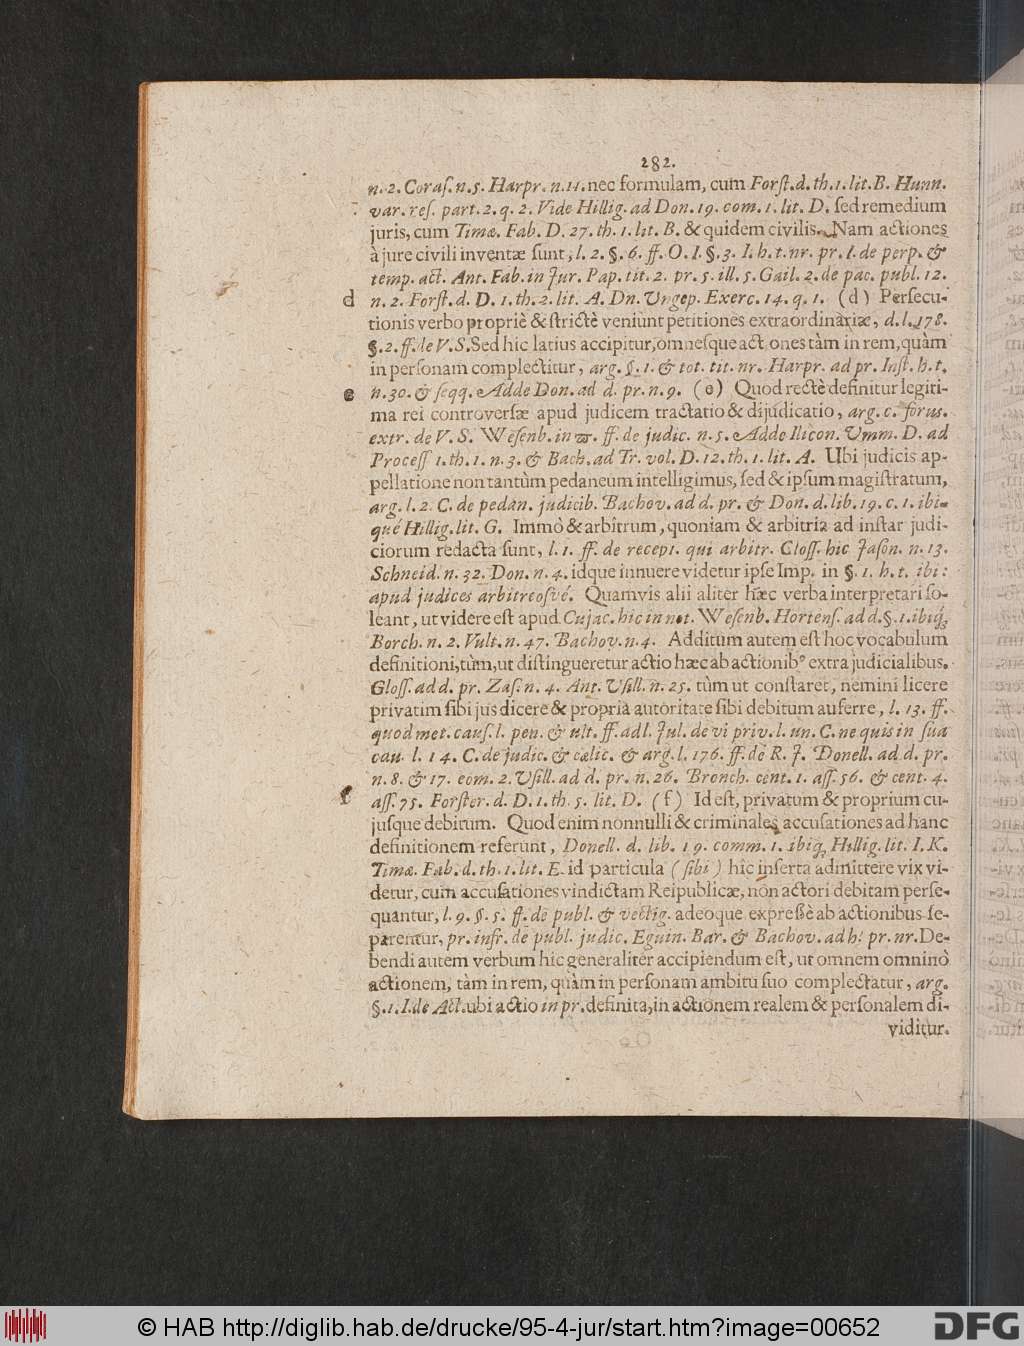 282.
n. 2. Coraſ. n. 5. Harpr. n. 11. nec formulam, cum Forſt. d. th. 1. lit. B. Hunn.
var. reſ. part. 2. q. 2. Vide Hillig. ad Don. 19. com. 1. lit. D. ſed remedium
juris, cum Timæ. Fab. D. 27. th. 1. lit. B. & quidem civilis. Nam actiones
à jure civili inventæ ſunt, l. 2. §. 6. ff. O. I. §. 3. I. h. t. nr. pr. I. de perp. &
temp. act. Ant. Fab. in Jur. Pap. tit. 2. pr. 5. ill. 5. Gail. 2. de pac. publ. 12.
d n. 2. Forſt. d. D. 1. th. 2. lit. A. Dn. Ungep. Exerc. 14. q. 1. (d) Perſecu-
tionis verbo propriè & ſtrictè veniunt petitiones extraordinariæ, d. l. 178.
§. 2. ff. de V. S. Sed hic latius accipitur, omneſque act ones tàm in rem, quàm
in perſonam complectitur, arg. §. 1. & tot. tit. nr. Harpr. ad pr. Inſt. h. t.
e n. 30. & ſeqq. Adde Don. ad d. pr. n. 9. (e) Quod rectè definitur legiti-
ma rei controverſæ apud judicem tractatio & dijudicatio, arg. c. forus.
extr. de V. S. Weſenb. in ϖ. ff. de judic. n. 5. Adde Ilicon. Umm. D. ad
Proceſſ 1. th. 1. n. 3. & Bach. ad Tr. vol. D. 12. th. 1. lit. A. Ubi judicis ap-
pellatione non tantùm pedaneum intelligimus, ſed & ipſum magiſtratum,
arg. l. 2. C. de pedan. judicib. Bachov. ad d. pr. & Don. d. lib. 19. c. 1. ibi-
qué Hillig. lit. G. Immò & arbitrum, quoniam & arbitria ad inſtar judi-
ciorum redacta ſunt, l. 1. ff. de recept. qui arbitr. Gloſſ. hic Jaſon. n. 13.
Schneid. n. 32. Don. n. 4. idque innuere videtur ipſe Imp. in §. 1. h. t. ibi:
apud judices arbitreosvé. Quamvis alii aliter hæc verba interpretari ſo-
leant, ut videre eſt apud Cujac. hic in not. Weſenb. Hortenſ. ad d. §. 1. ibiq́;
Borch. n. 2. Vult. n. 47. Bachov. n. 4. Additum autem eſt hoc vocabulum
definitioni, tùm, ut diſtingueretur actio hæc ab actionibꝰ extrajudicialibus.
Gloſſ. ad d. pr. Zaſ. n. 4. Ant. Uſill. n. 25. tùm ut conſtaret, nemini licere
privatim ſibi jus dicere & propriâ autoritate ſibi debitum auferre, l. 13. ff.
quod met. cauſ. l. pen. & ult. ff. ad l. Jul. de vi priv. l. un. C. ne quis in ſua
cau. l. 14. C. de judic. & cælic. & arg. l. 176. ff. de R. J. Donell. ad d. pr.
n. 8. & 17. com. 2. Uſill. ad d. pr. n. 26. Bronch. cent. 1. aſſ. 56. & cent. 4.
f aſſ. 75. Forſter. d. D. 1. th. 5. lit. D. (f) Id eſt, privatum & proprium cu-
jusque debitum. Quod enim nonnulli & criminales accuſationes ad hanc
definitionem referunt, Donell. d. lib. 19. comm. 1. ibiq; Hillig. lit. I. K.
Timæ. Fab. d. th. 1. lit. E. id particula (ſibi) hîc inſerta admittere vix vi-
detur, cum accuſationes vindictam Reipublicæ, non actori debitam perſe-
quantur, l. 9. §. 5. ff. de publ. & vectig. adeoque expreſſè ab actionibus ſe-
parentur, pr. infr. de publ. judic. Eguin. Bar. & Bachov. ad h. pr. nr. De-
bendi autem verbum hic generaliter accipiendum eſt, ut omnem omninò
actionem, tàm in rem, quàm in perſonam ambitu ſuo complectatur, arg.
§. 1. I. de Act. ubi actio in pr. definita, in actionem realem & perſonalem di-
viditur.
© HAB http://diglib.hab.de/drucke/95-4-jur/start.htm?image=00652
DFG